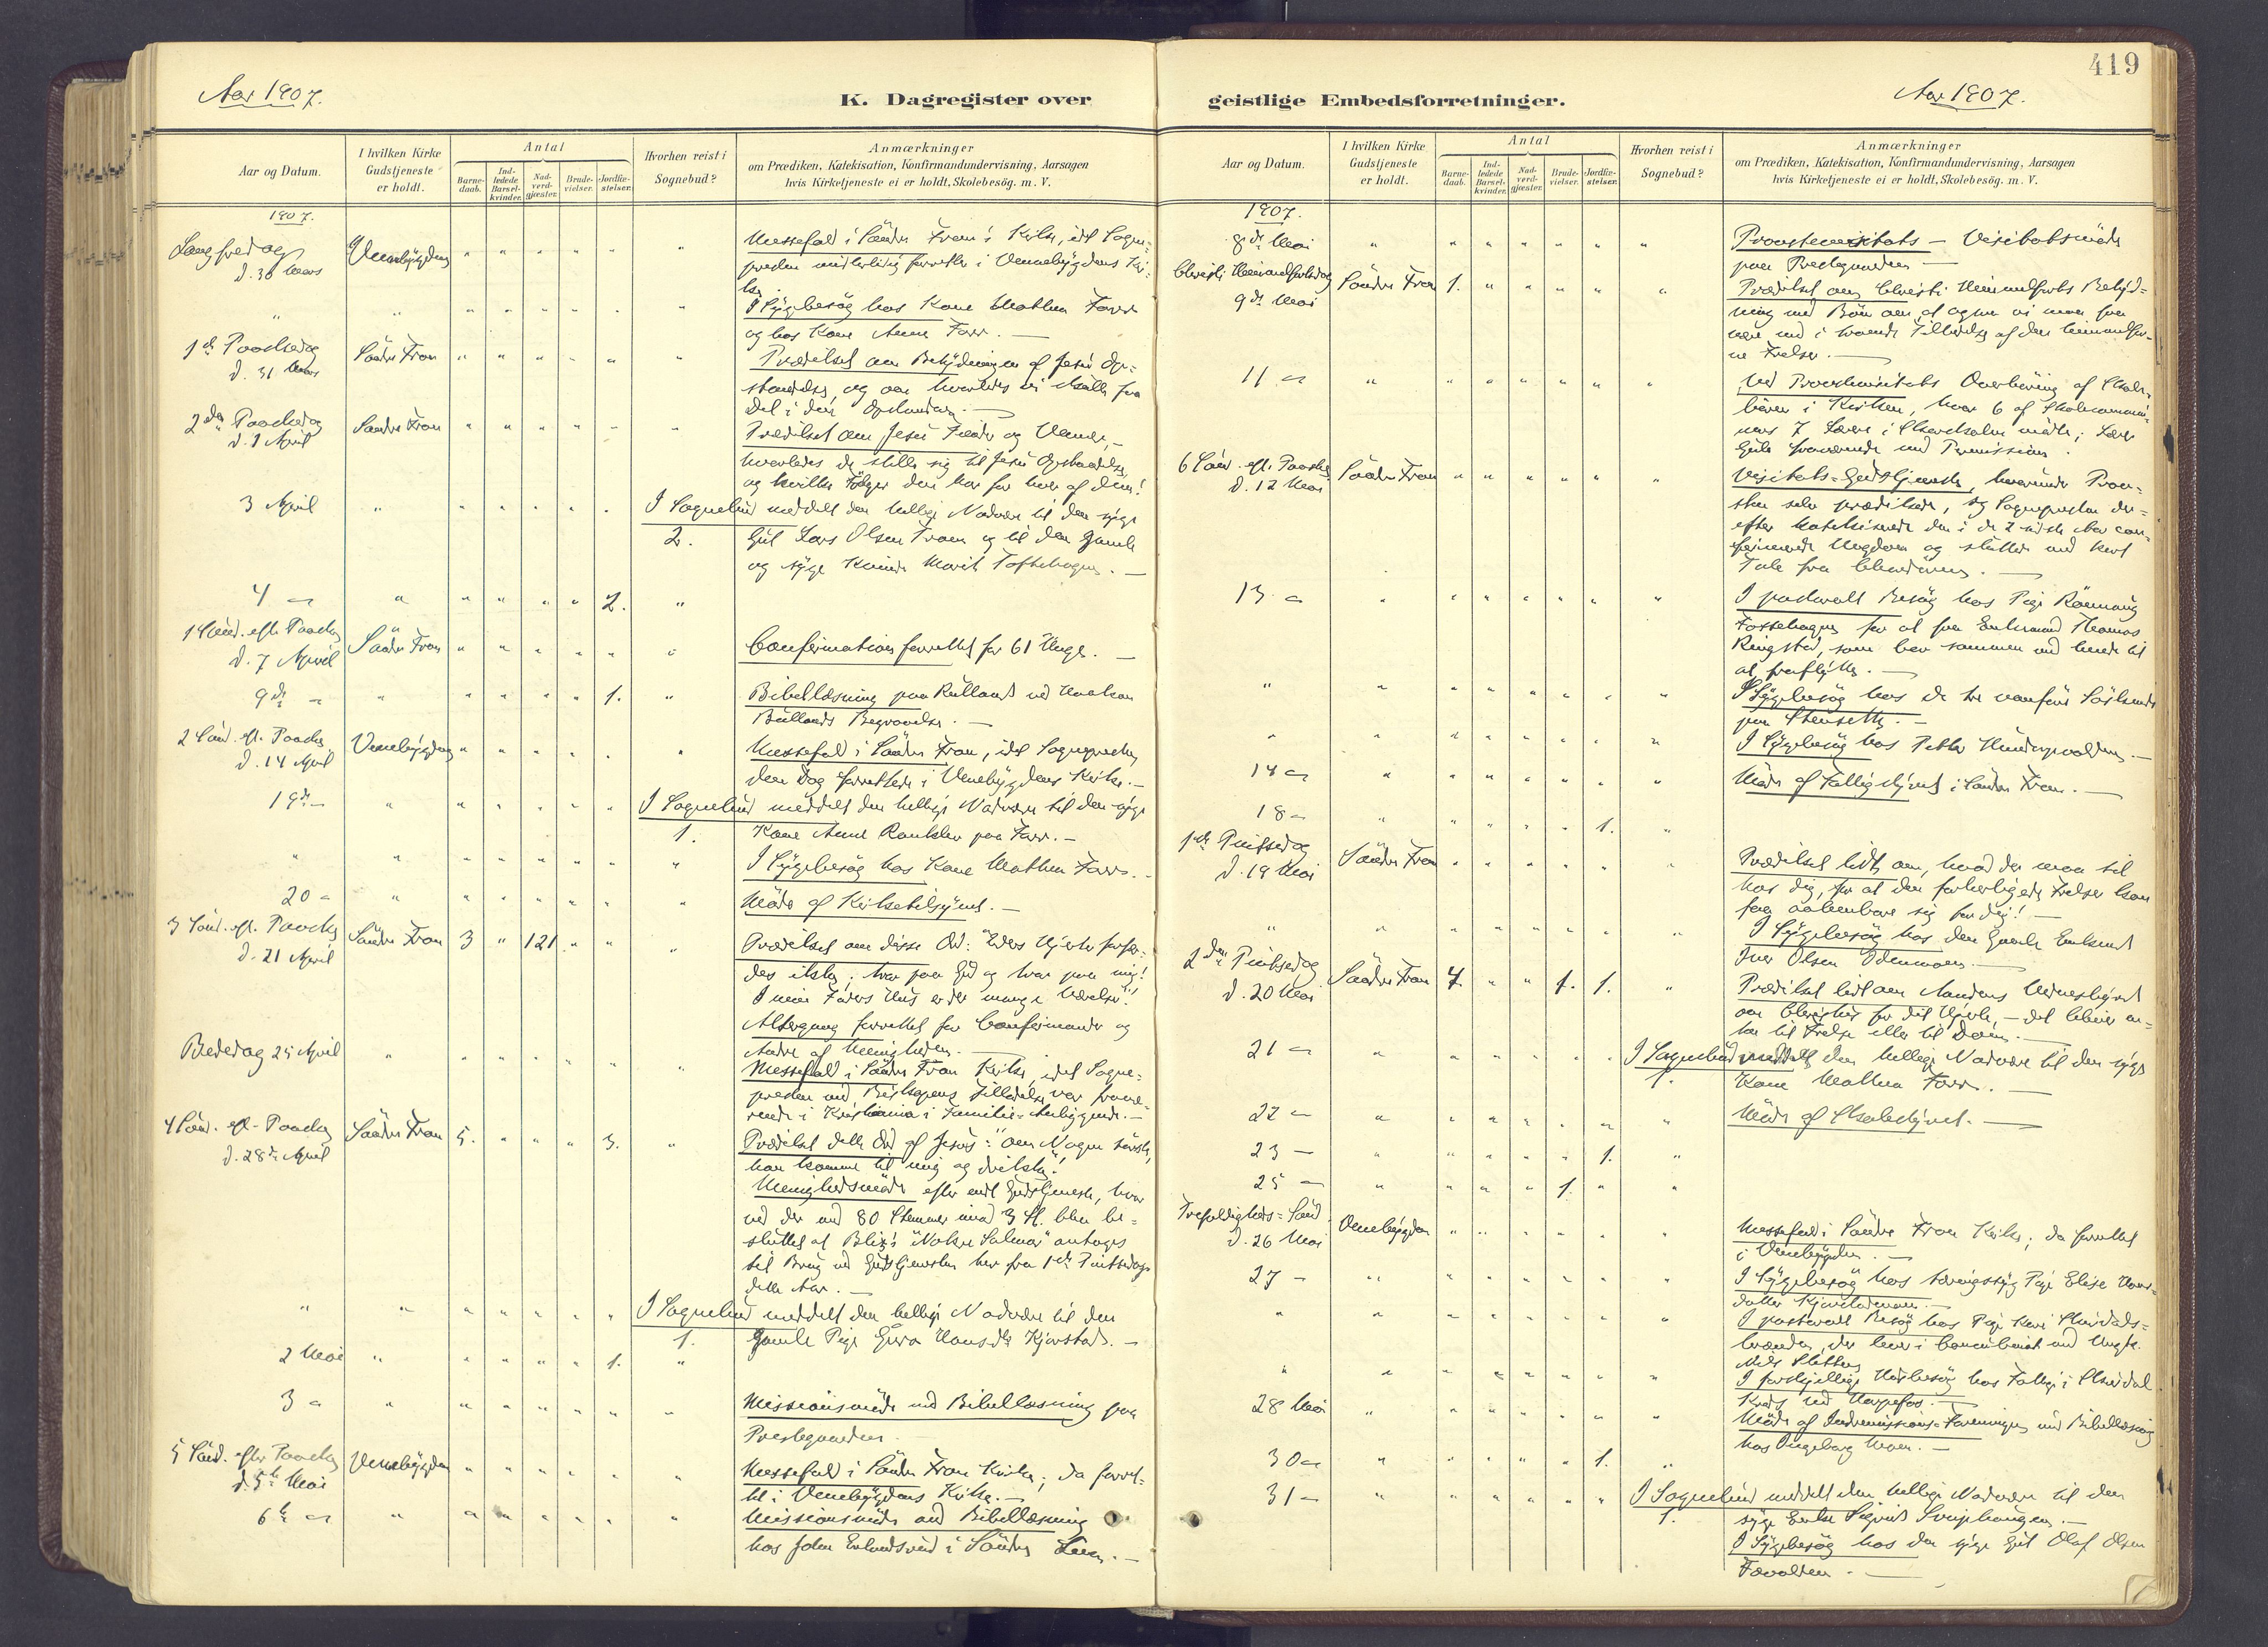 419
Aar 1907.
K. Dagregister over
geistlige Embedsforretninger.
Aar 1907.
Aar og Datum.
I hvilken Kirke Gudstjeneste er holdt.
Antal
Barnedaab.
Indledede Barselkvinder.
Nadverdgjæster.
Brudevielser.
Jordfæstelser.
Hvorhen reist i Sognebud?
Anmærkninger
om Prædiken, Katekisation, Konfirmandundervisning, Aarsagen
hvis Kirketjeneste ei er holdt, Skolebesög. m. V.
1907.
Langfredag Venebygden " " " " " " Messefald i Söndre Fron's Kirke, idet Sogne-
d. 30 Mars presten midlertidig forretter i Vennebygdens Kir-
ke.
" " " " " " " I Sygebesög hos Kone Mathea Farr
og hos Kone Anne Farr. —
1ste Paaskedag Söndre Fron " " " " " " Prædiket om Betydningen af Jesu Op-
d. 31 Mars standelse, og om hvorledes vi skulle faa
Del i den Opstandelse. —
2den Paaskedag Söndre Fron " " " " " " Prædiket om Jesu Fiender og Venner, —
d. 1 April hvorledes de stille sig til Jesu Opstandelse
og hvilke Fölger den har for hver af dem!
3 April " " " " " " I Sognebud meddelt den hellige Nadvere til den syge
2. Gut Lars Olsen Fron og til den gamle
og syge Kvinde Marit Toftehagen. —
4 — " " " " " 2. "
1 Sönd. eft. Paaske Söndre Fron " " " " " " Confirmation forrettet for 61 Unge. —
d. 7 April
9de — " " " " " 1. " Bibellæsning paa Rulland ved Haakon
Rullands Begravelse. —
2 Sönd. eft. Paaske Venebygden " " " " " " Messefald i Söndre Fron, idet Sognepresten
d. 14 April den Dag forrettede i Venebygdens Kirke. —
19de — " " " " " " I Sognebud meddelt den hellige Nadvere til den syge
1. Kone Anne Ranklev paa Farr. —
" " " " " " " " I Sygebesög hos Kone Mathea Farr. —
20 — " " " " " " " Möde af Kirketilsynet. —
3 Sönd. eft. Paaske Söndre Fron 3 " 121 " " " Prædiket om disse Ord: "Eders Hjerte forfær-
d. 21 April des ikke; tror paa Gud og tror paa mig!
I min Faders Hus er der mange Værelser!"
Altergang forrettet for Confirmander og
Andre af Menigheden. —
Bededag 25 April " " " " " " " Messefald i Söndre Fron Kirke, idet Sogne-
presten med Biskopens Tilladelse var fravæ-
rende i Kristiania i Familie-Anliggende. —
4 Sönd. eft. Paaske Söndre Fron 5. " " " 3. " Prædiket dette Ord af Jesus: "Om Nogen törster,
d. 28de April han komme til mig og drikke!"
Menighedsmöde efter endt Gudstjeneste, hvor
ved der med 80 Stemmer imod 3 St. blev be-
sluttet at Blix's "Nokre Salmar" antages
til Brug ved Gudstjenesten her fra 1ste Pintsedag
dette Aar. —
" " " " " " " I Sognebud meddelt den hellige Nadvere til den
1. gamle Pige Guro Hansdtr Kjorstad. —
2 Mai " " " " " 1. "
3 — " " " " " " " Missionsmöde med Bibellæsning paa
Prestegaarden —
5 Sönd. efter Paaske Venebygden " " " " " " Messefald i Söndre Fron Kirke, da forret-
d. 5te Mai tet i Venebygdens Kirke. —
6te — " " " " " " " Missionsmöde med Bibellæsning
hos i Söndre —
Aar og Datum.
I hvilken Kirke Gudstjeneste er holdt.
Antal
Barnedaab.
Indledede Barselkvinder.
Nadverdgjæster.
Brudevielser.
Jordfæstelser.
Hvorhen reist i Sognebud?
Anmærkninger
om Prædiken, Katekisation, Konfirmandundervisning, Aarsagen
hvis Kirketjeneste ei er holdt, Skolebesög. m. V.
1907.
8de Mai " " " " " " " Provstevisitats — Visitatsmöde
paa Prestegaarden —
Christi Himmelfartsdag Söndre Fron 1. " " " " " Prædiket om Christi Himmelfarts Betyd-
9de Mai ning med Bön om, at ogsaa vi maa faa
være med i troende Tilbedelse af den himmelfar-
ne Frelser. —
11 — " " " " " " " Ved Provstevisitats Overhöring af Skole-
börn i Kirken, hvor 6 af Skolekommu-
nens 7 Lærere i mödte; Lærer
fraværende med Permission.
6 Sönd. eft. Paaske Söndre Fron " " " " " " Visitats-Gudstjeneste, hvorunder Prov-
d. 12 Mai sten selv prædikede, og Sognepresten der-
efter katekiserede den i de 2 sidste Aar con-
firmerede Ungdom og sluttede med kort
Tale fra Chordören. —
13 — " " " " " " " I pastoralt Besög hos Pige Rönnaug
Fossehagen for at faa Enkemand Thomas
Ringstad, som bor sammen med hende til
at fraflytte. —
" " " " " " " " I Sygebesög hos de tre vanföre Söskende
paa Steinsetli. —
" " " " " " " " I Sygebesög hos Petter —
14 — " " " " " " " Möde af Fattigstyret i Söndre Fron. —
18 — " " " " " 1. "
1ste Pintsedag Söndre Fron " " " " " " Prædiket lidt om, hvad der maa til
d. 19 Mai hos dig, for at den forherligede Frelser kan
faa aabenbare sig for dig! —
" " " " " " " " I Sygebesög hos den gamle Enkemd
Iver Olsen Odenmoen. —
2den Pintsedag Söndre Fron 4. " " 1. 1. " Prædiket lidt om Aandens Vidnesbyrd
d. 20 Mai om Christus for dit Hjerte, — det bliver en-
ten til Frelse eller til Dom. —
21 — " " " " " " I Sognebud meddelt den hellige Nadvere til den syge
1. Kone Mathea Farr. —
22 — " " " " " " " Möde af Skolestyret. —
23 — " " " " " 1. "
25 — " " " " 1. " "
Trefoldigheds-Sönd. Venebygden " " " " " " Messefald i Söndre Fron Kirke, da forrettet
d. 26 Mai i Venebygden. —
27 — " " " " " " " I Sygebesög hos tæringssyg Pige Elise Iver-
datter —
" " " " " " " " I pastoralt Besög hos Pige Kari
der lever i Concubinat med Ungk.
Nils Sletten
" " " " " " " I forskjellige Husbesög hos Fattige i
Kreds ved Harpefos. —
28 Mai " " " " " " " Möde af Indremissions-Foreningen med Bibellæsning
hos Ingeborg —
30 — " " " " " 1. "
31 — " " " " " " I Sognebud meddelt den hellige Nadvere til den
1. syge Enke Sigrid —
I Sygebesög hos den syge Gut Olaf Olsen
—